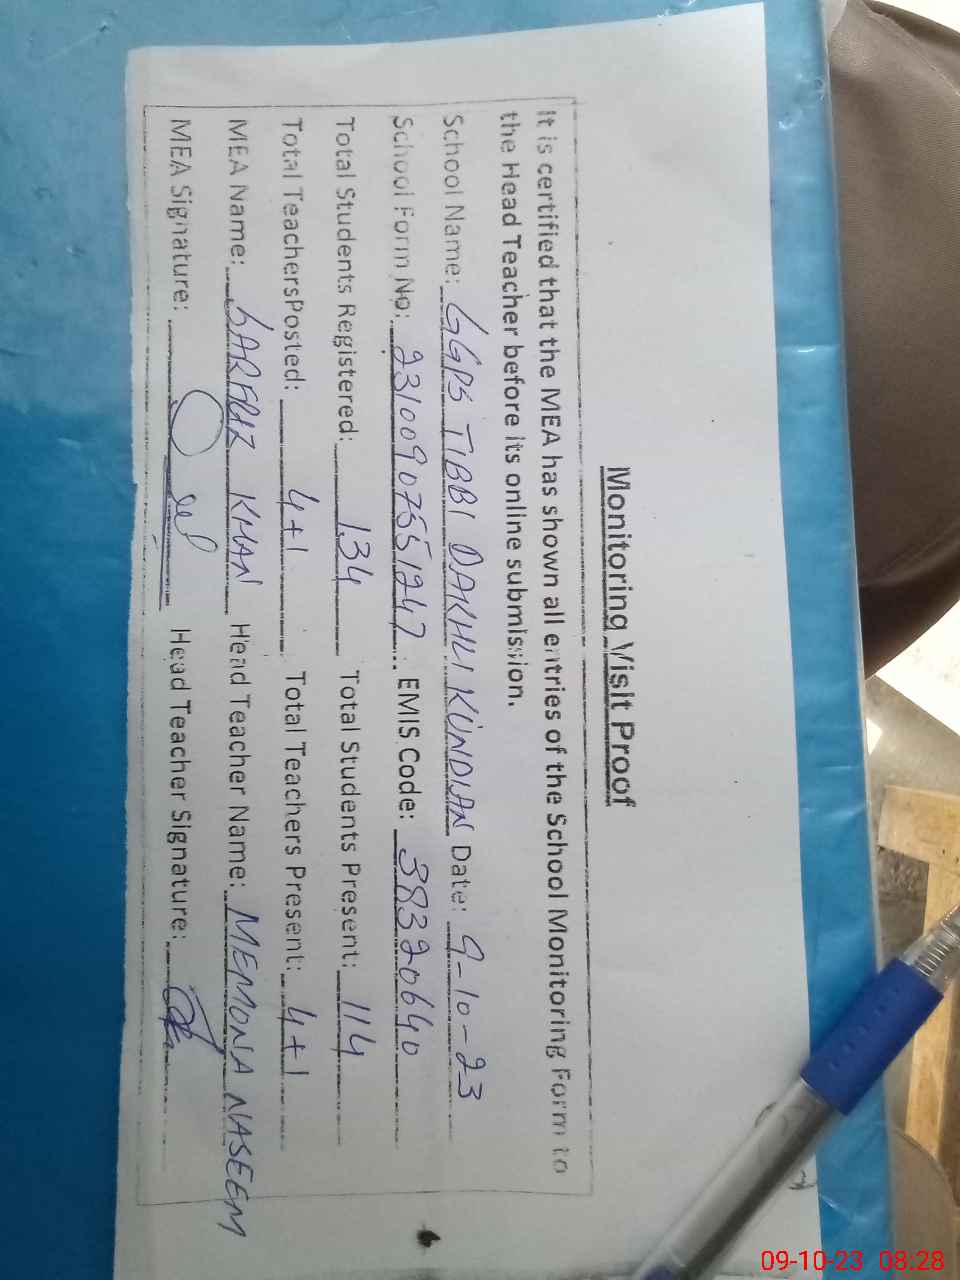 Monitoring Visit Proof
It is certified that the MEA has shown all entries of the School Monitoring Form to
the Head Teacher before its online submission.
School Name: GGPS TIBBI DAKHLI KUNDIAN Date: 9-10-23
School Form No: 23100907551247 EMIS Code: 38320640
Total Students Registered: 134 Total Students Present: 114
Total TeachersPosted: 4+1 Total Teachers Present: 4+1
MEA Name: KHAN Head Teacher Name: MEMONA NASEEM
MEA Signature: Head Teacher Signature:
09-10-23 08:28